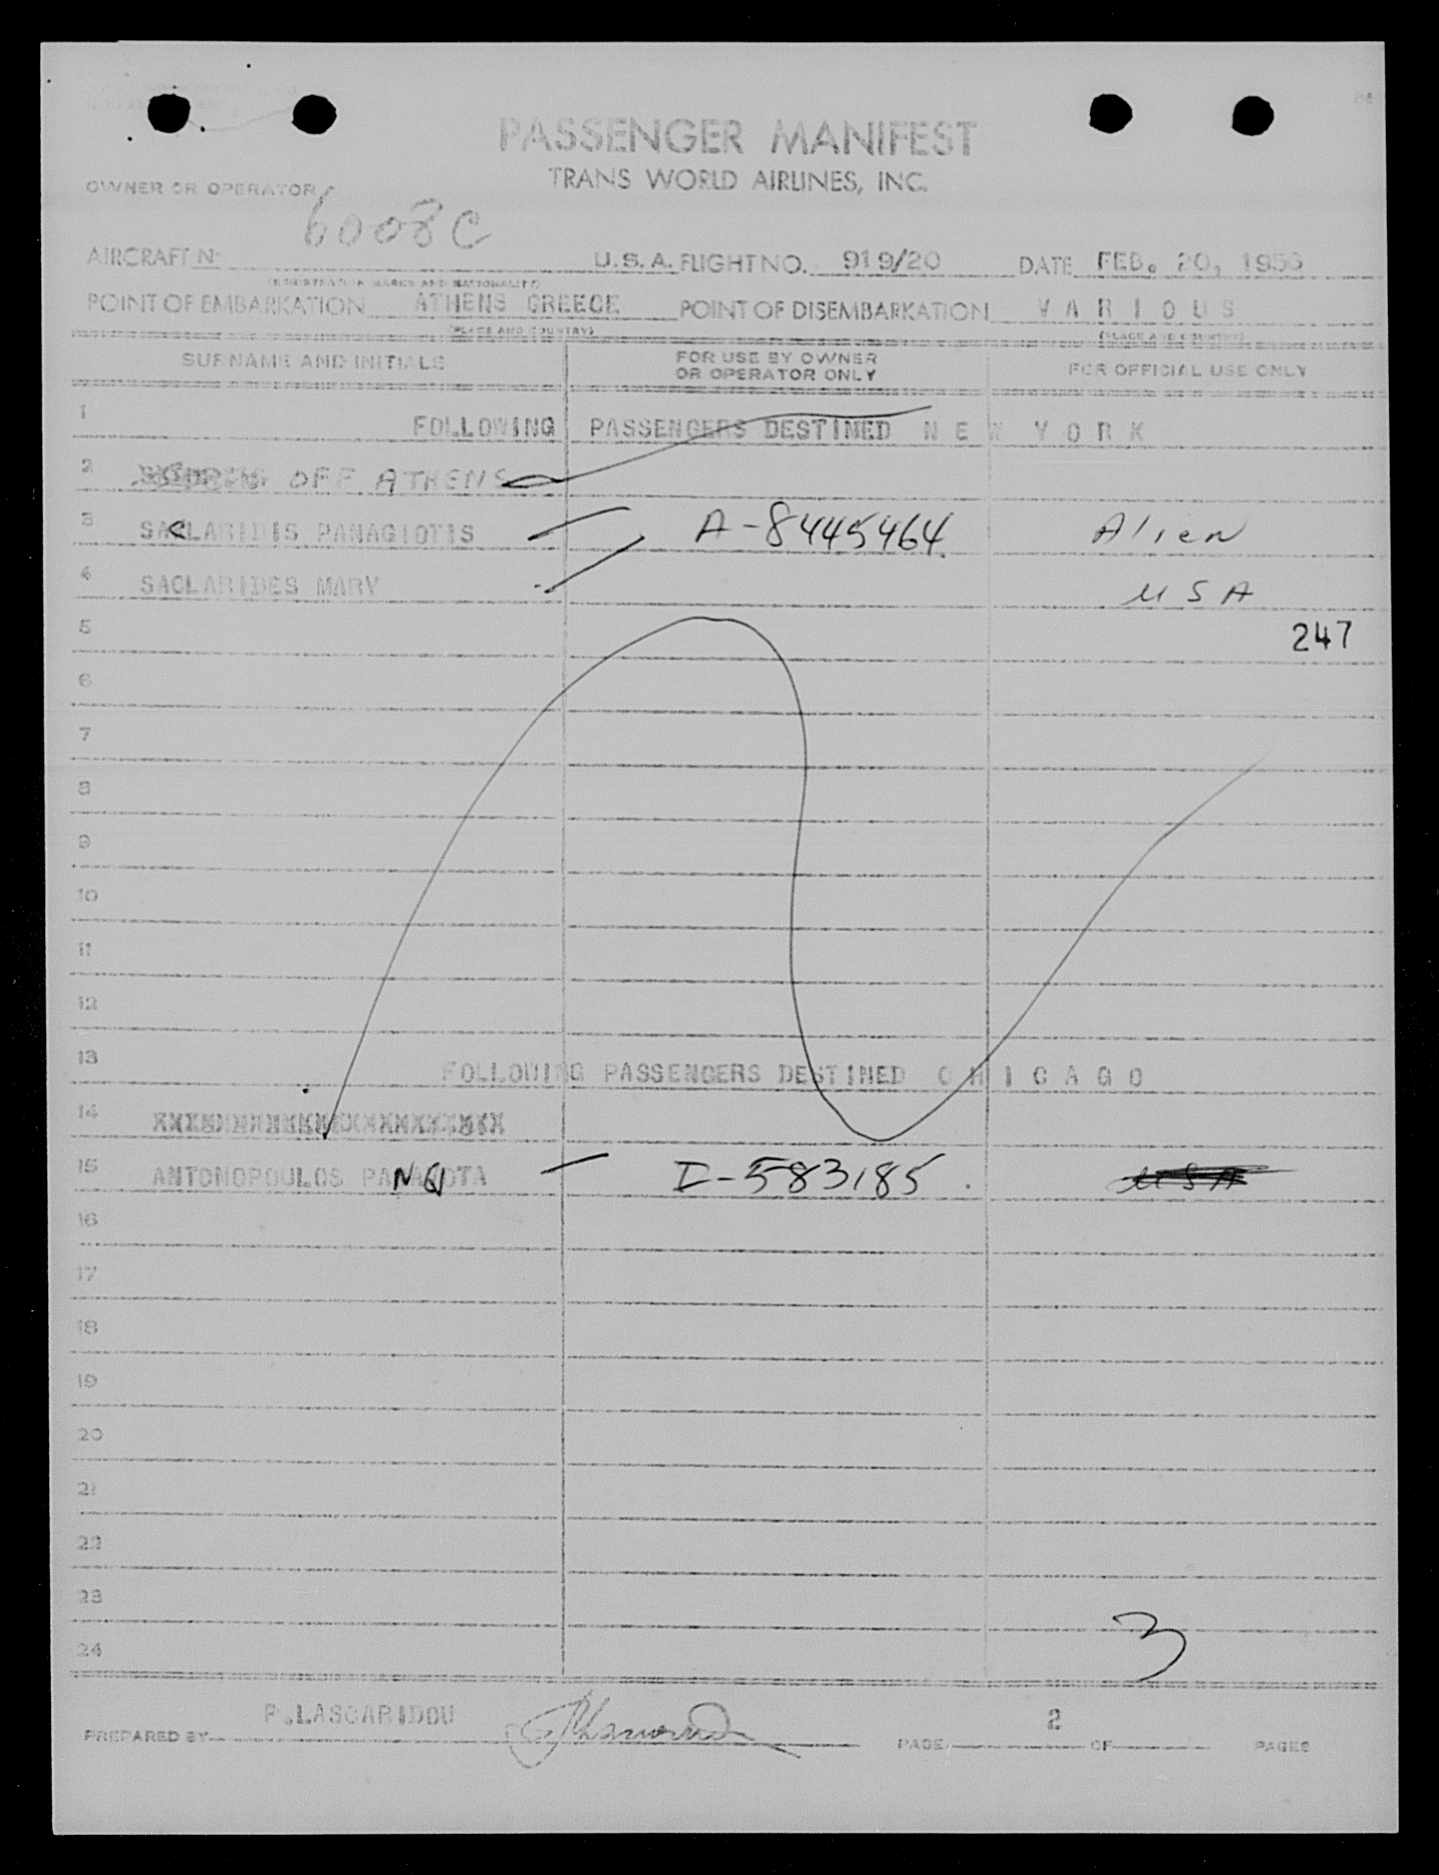 PASSENGER MANIFEST
TRANS WORLD AIRLINES, INC.
OWNER OR OPERATOR
6008C
AIRCRAFT Nº U.S.A. FLIGHT NO. 919/20 DATE FEB. 20, 1955
(REGISTRATION MARKS AND NATIONALITY)
POINT OF EMBARKATION ATHENS GREECE POINT OF DISEMBARKATION V A R I O U S
(PLACE AND COUNTRY) (PLACE AND COUNTRY)
SURNAME AND INITIALS FOR USE BY OWNER OR OPERATOR ONLY FOR OFFICIAL USE ONLY
1 FOLLOWING PASSENGERS DESTINED N E W Y O R K
2 OFF ATHENS
3 SACLARIDIS PANAGIOTIS A-8445464 Alien
4 SACLARIDES MARY USA
5 247
6
7
8
9
10
11
12
13 FOLLOWING PASSENGERS DESTINED C H I C A G O
14
15 ANTONOPOULOS PANAGOTA I-583185 USA
16
17
18
19
20
21
22
23
24
3
PREPARED BY P.LASCARIDOU PAGE 2 OF PAGES